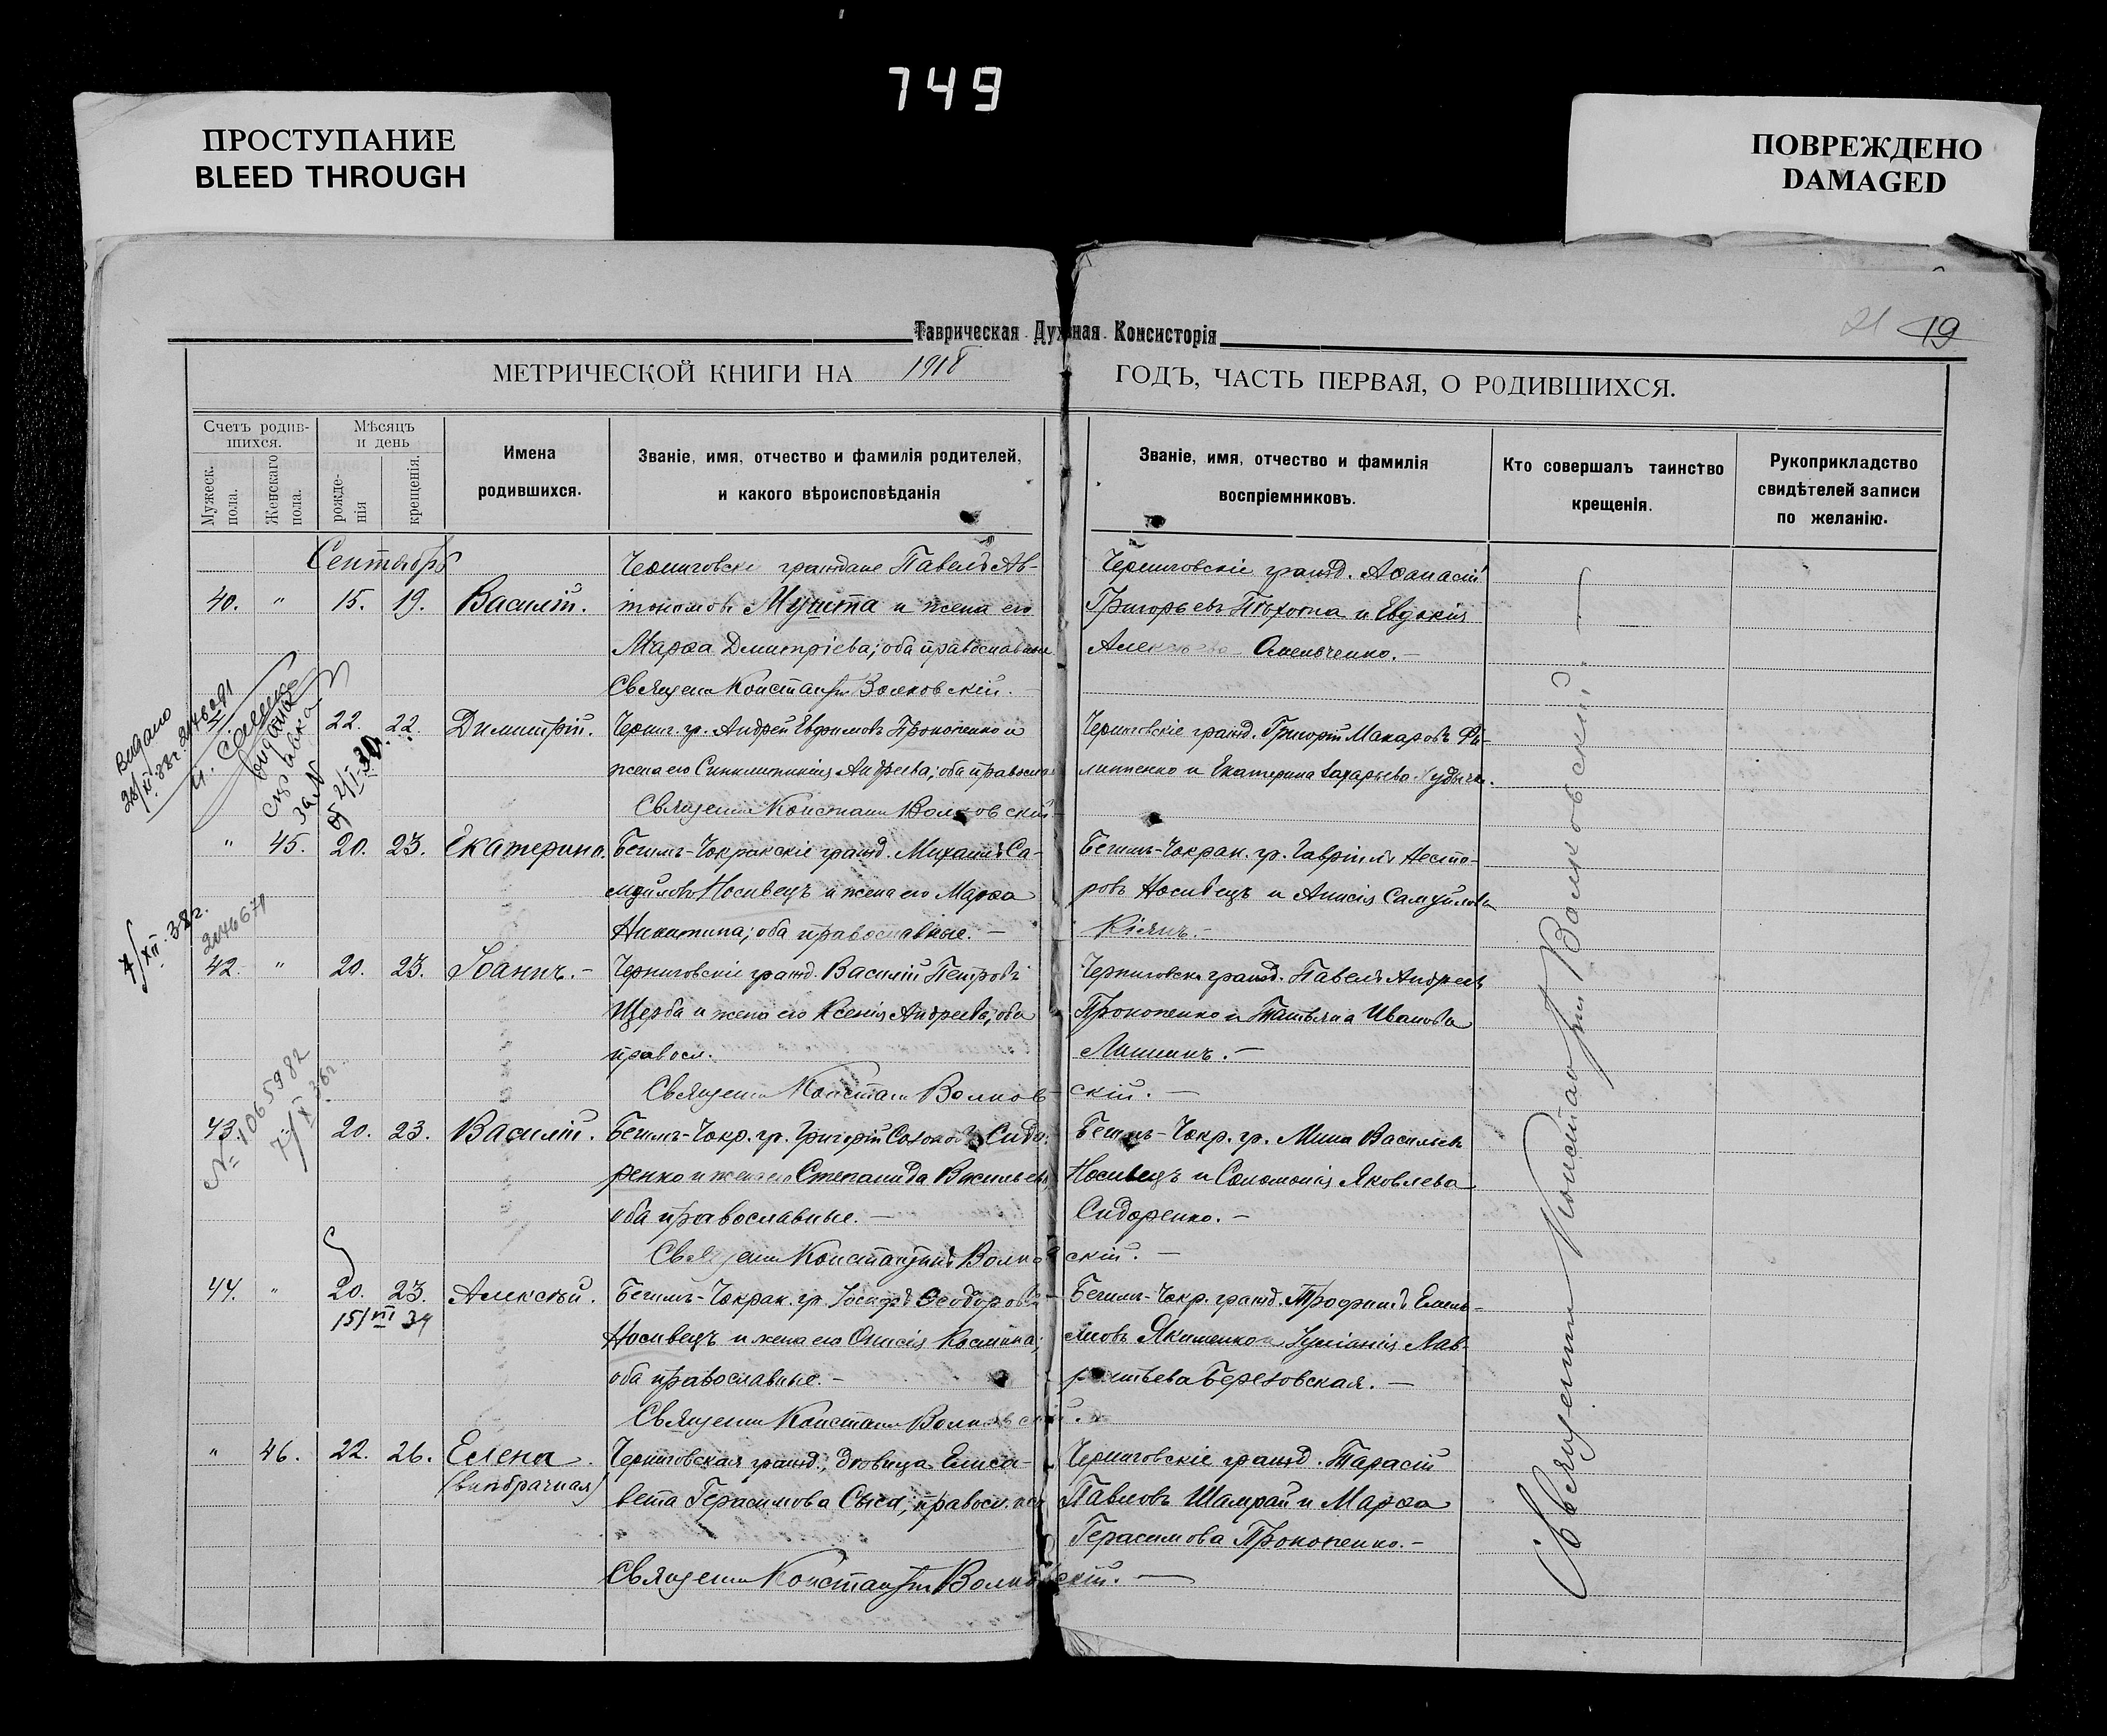 749
ПРОСТУПАНИЕ
BLEED THROUGH
ПОВРЕЖДЕНО
DAMAGED
21 19
Таврическая Духовная Консисторія
МЕТРИЧЕСКОЙ КНИГИ НА 1918 ГОДЪ, ЧАСТЬ ПЕРВАЯ, О РОДИВШИХСЯ.
Счетъ родив-
шихся.
Мужеск. пола.
Женскаго пола.
Мѣсяцъ
и день
рожде-
нія
крещенія.
Имена
родившихся.
Званіе, имя, отчество и фамилія родителей,
и какого вѣроисповѣданія
Званіе, имя, отчество и фамилія
воспріемниковъ.
Кто совершалъ таинство
крещенія.
Рукоприкладство
свидѣтелей записи
по желанію.
Сентябрь
40. " 15. 19. Василій.
Черниговскі граждане Павелъ Ав-
тономовъ Мушта и жена его
Марѳа Димитріева; оба православные
Священ Констан Волковскій.
Черниговскіе гражд. Аѳанасій
Григорьевъ Похотна и Евдокія
Омельченко.-
Видано
28/II 33г 2476091
видана
справка
за №
от 2/I-30.
22. 22. Димитрій.
Черниг. гр. Андрей Евфимовъ Прокопенко и
жена его Синклитикія Андреева; оба правосла
Священ Констан Волковскій
Черниговскіе гражд. Григорій Макаровъ Фи-
липпенко и Екатерина Захарьева
" 45. 20. 23. Екатерина.
Бегимъ-Чокракскіе гражд. Михаилъ Са-
муиловъ Носивецъ и жена его Марѳа
Никитина; оба православные.-
Бегимъ-Чокрак. гр. Гавріилъ Несто-
ровъ Носивецъ и Анисія Самуилова
Кіянъ.-
7/XII.38г.
2046679
42. " 20. 23. Іоаннъ.-
Черниговскіе гражд. Василій Петровъ
Щерба и жена его Ксенія Андреева; оба
правосл.
Священ Констан Волковскій.-
Черниговскі гражд. Павелъ Андреев
Прокопенко и Татьяна Иванова
Лишинъ.-
№ 1065982
7/X 38г.
43. " 20. 23. Василій.
Бегимъ-Чокр. гр. Григорій Созоновъ Сидо-
ренко и жена его Степанида Васильева;
оба православные.-
Священ Константинъ Волковскій.-
Бегимъ-Чокр. гр. Мина Васильев
Носивецъ и Соломонія Яковлева
Сидоренко.-
44. " 20. 23. Алексѣй.
15/VII 34
Бегимъ-Чокрак. гр. Іосифъ Ѳеодоровъ
Носивецъ и жена его Онисія Космина;
оба православные.-
Священ Констан Волковскій.
Бегимъ-Чокр. гражд. Трофимъ Емель-
яновъ Якименко и Іуліанія Лав-
рентьева Березовская.-
" 46. 22. 26. Елена.
(внѣбрачная)
Черниговская гражд., вдовица Елиса-
вета Герасимова Сыса; правосл.
Священ Констан Волковскій.-
Черниговскіе гражд. Тарасій
Павловъ Шамрай и Марѳа
Герасимова Прокопенко.-
Священ Констан Волковскій.